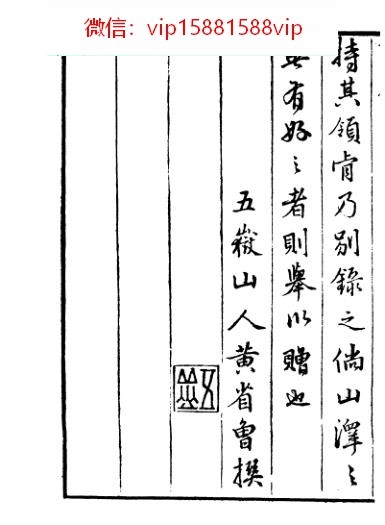 微信：vip15881588vip
持其領肯乃别錄之倘山澤之
有好之者則舉以贈也
五嶽山人黃省曾撰